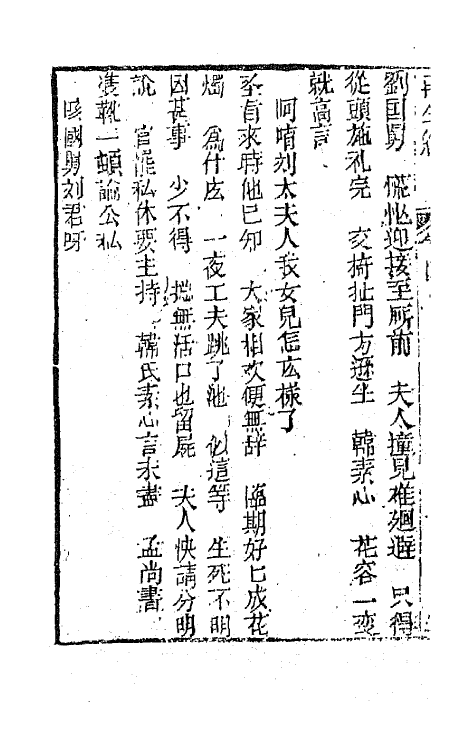 再生緣
劉国舅　慌忙迎接至所前　夫人撞見难廻避　只得
從頭施礼完　交椅扯開方遜坐　韓素心　花容一变
就高言
阿唷刘太夫人我女兒怎広樣了
圣旨來時他已知　大家相欢便無辞　臨期好匕成花
燭　為什広　一夜工夫跳了池　似這等　生死不明
因甚事　少不得　揽無活口也留屍　夫人快請分明
說　官罷私休要主持　韓氏素心言未盡　孟尚書
靴一頓論公私
咳國舅刘君呀